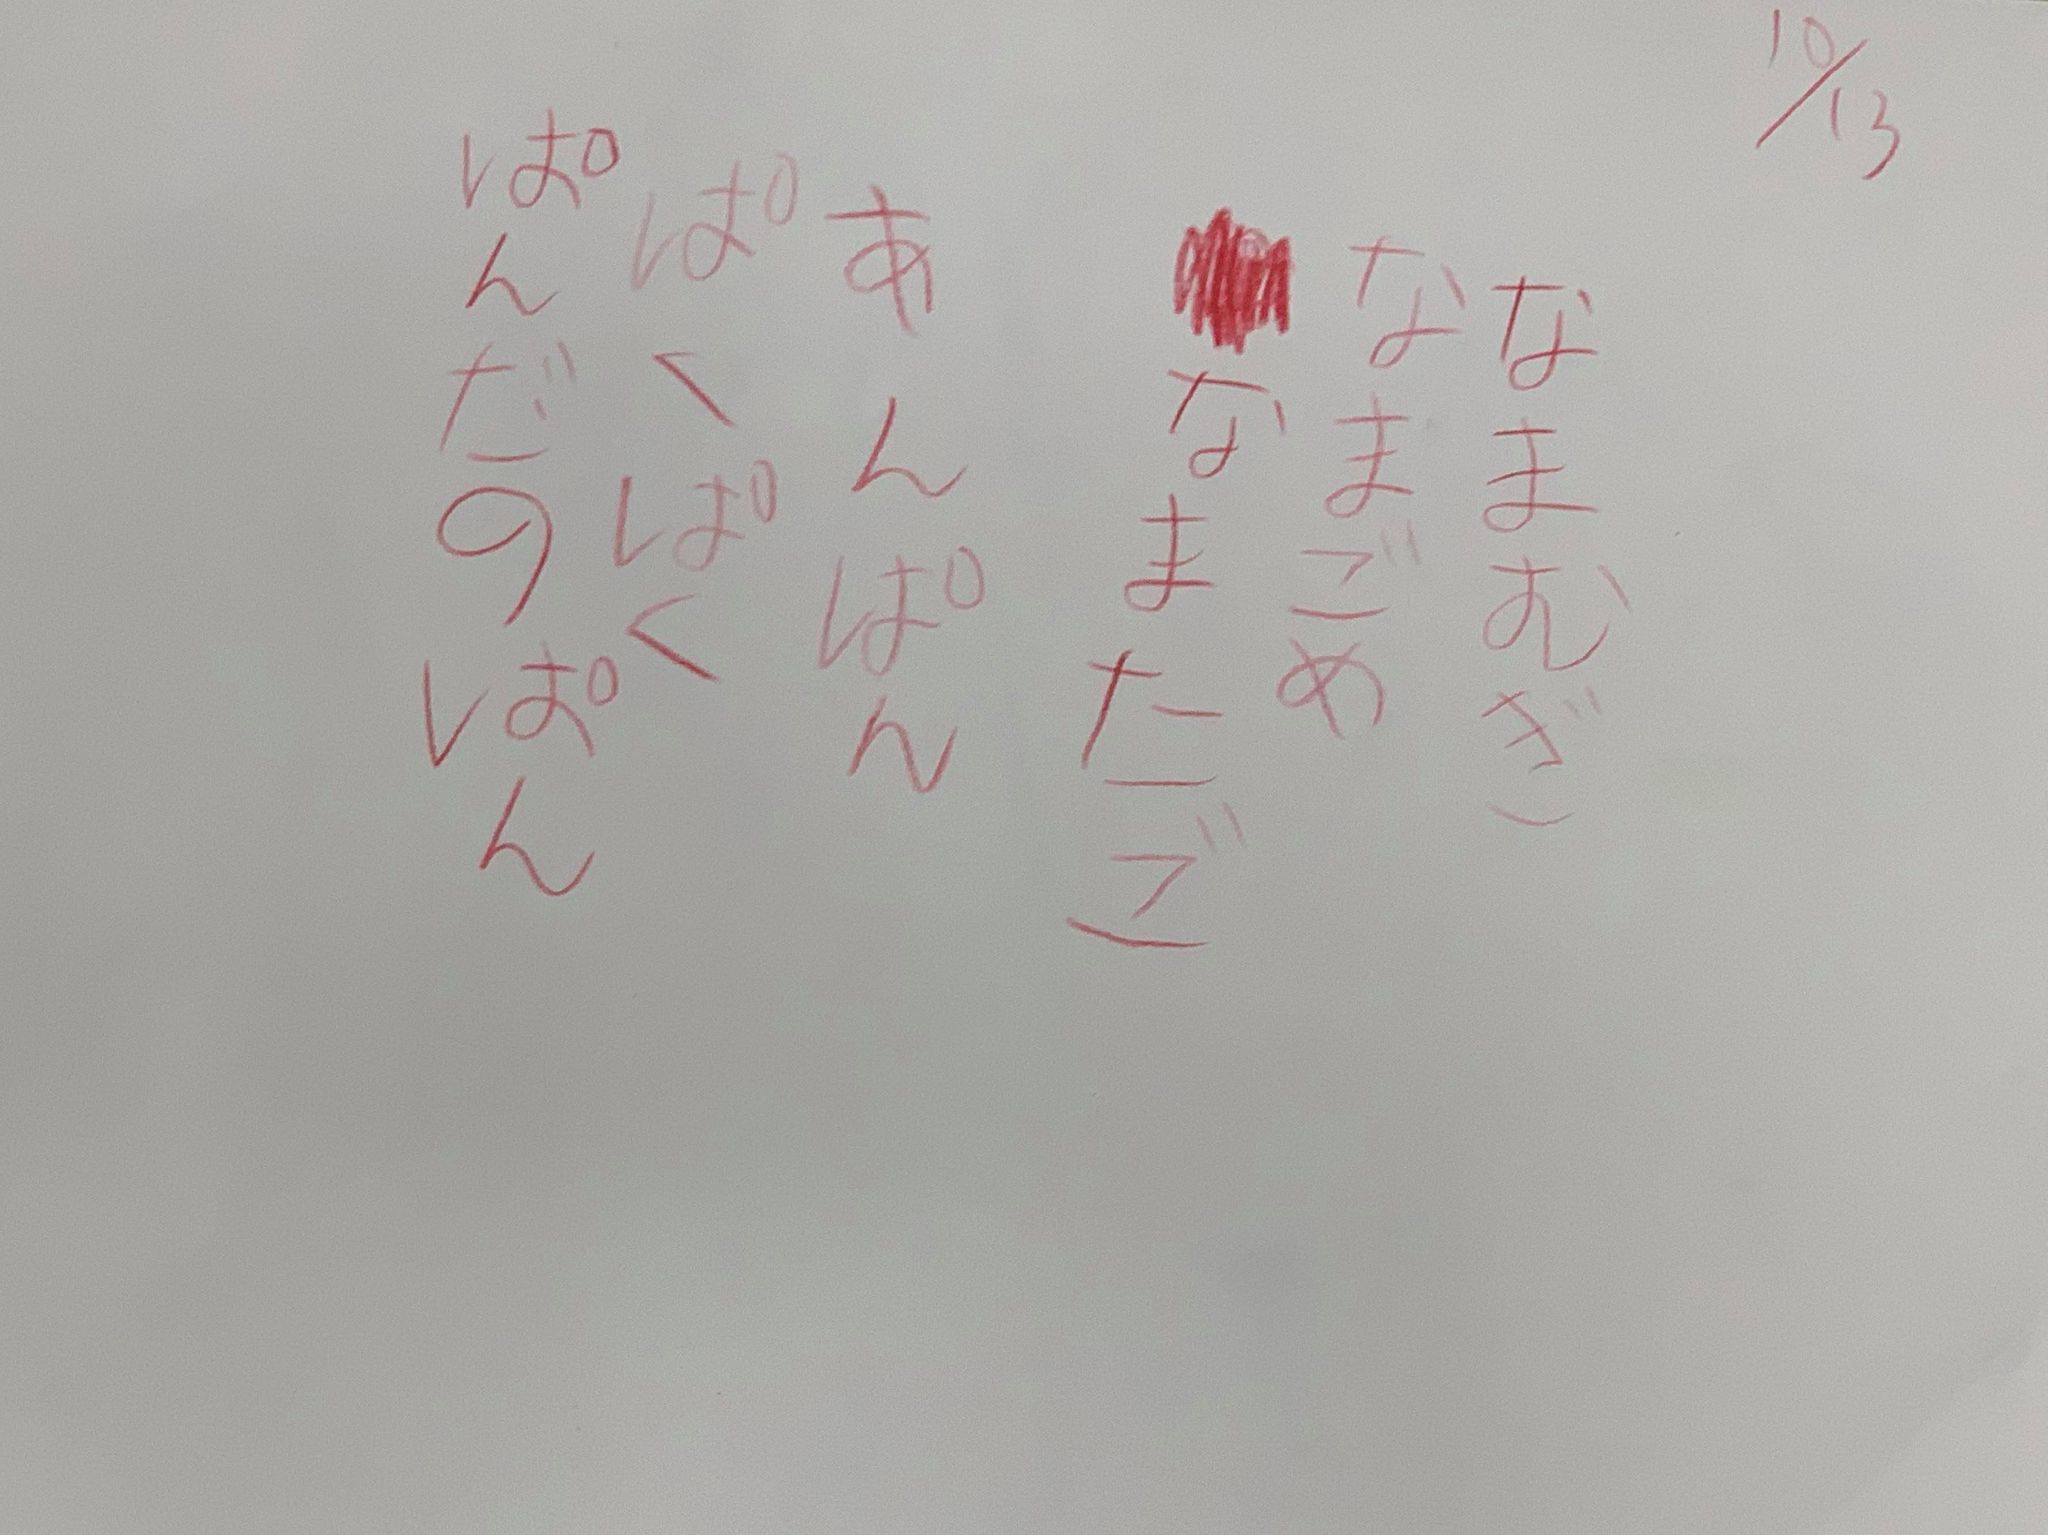 10/13
なまむぎ
なまごめ
なまたご
あんぱん
ぱくぱく
ぱんだのぱん